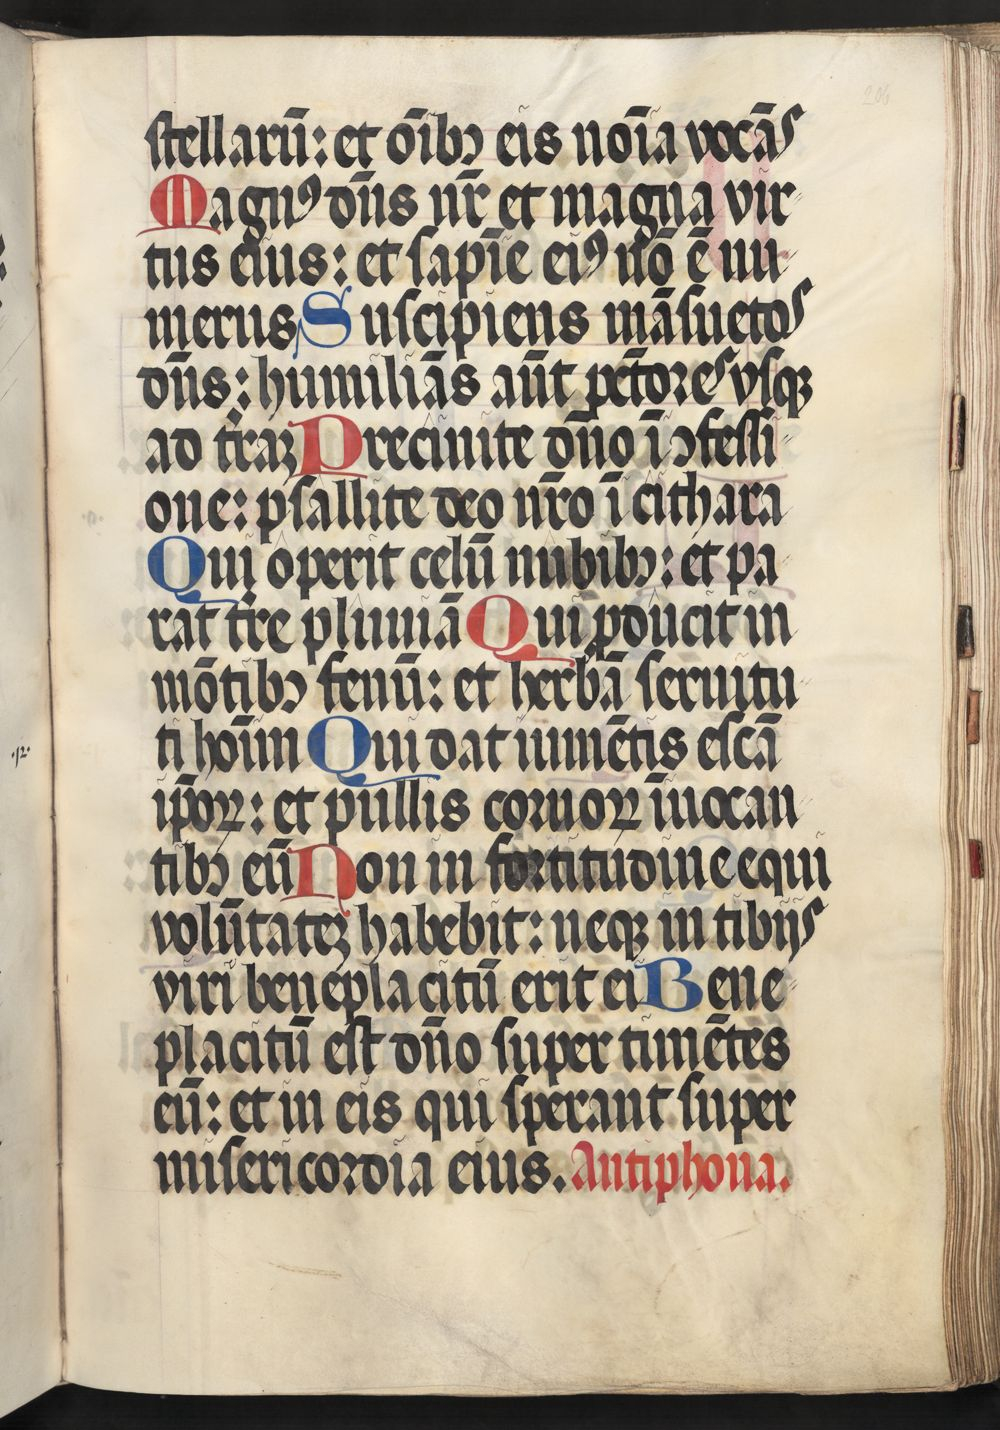 stellarū: et oīb9 eis noīa vocās
Magn9 dn̄s nr̄ et magna vir
tus eius: et sapīe ei9 nō ē nu
merus Suscipiens māsuetos
dn̄s: humiliās aūt pctōres vsqꝫ
ad trāꝫ Precinite dn̄o ī ꝯfessi
one: psallite deo nr̄o ī cithara
Qui operit celū nubib9: et pa
rat tr̄e pluuiā Qui ꝓducit in
mōtib9 fenū: et herbā seruitu
ti hoīm Qui dat iumētis escā
ip̄oꝝ: et pullis coruoꝝ īuocan
tib9 eū Non in fortitudine equi
volūtateꝫ habebit: neqꝫ in tibijs
viri beneplacitū erit ei Bene
placitū est dn̄o super timētes
eū: et in eis qui sperant super
misericordia eius. Antiphona.
206
.12.